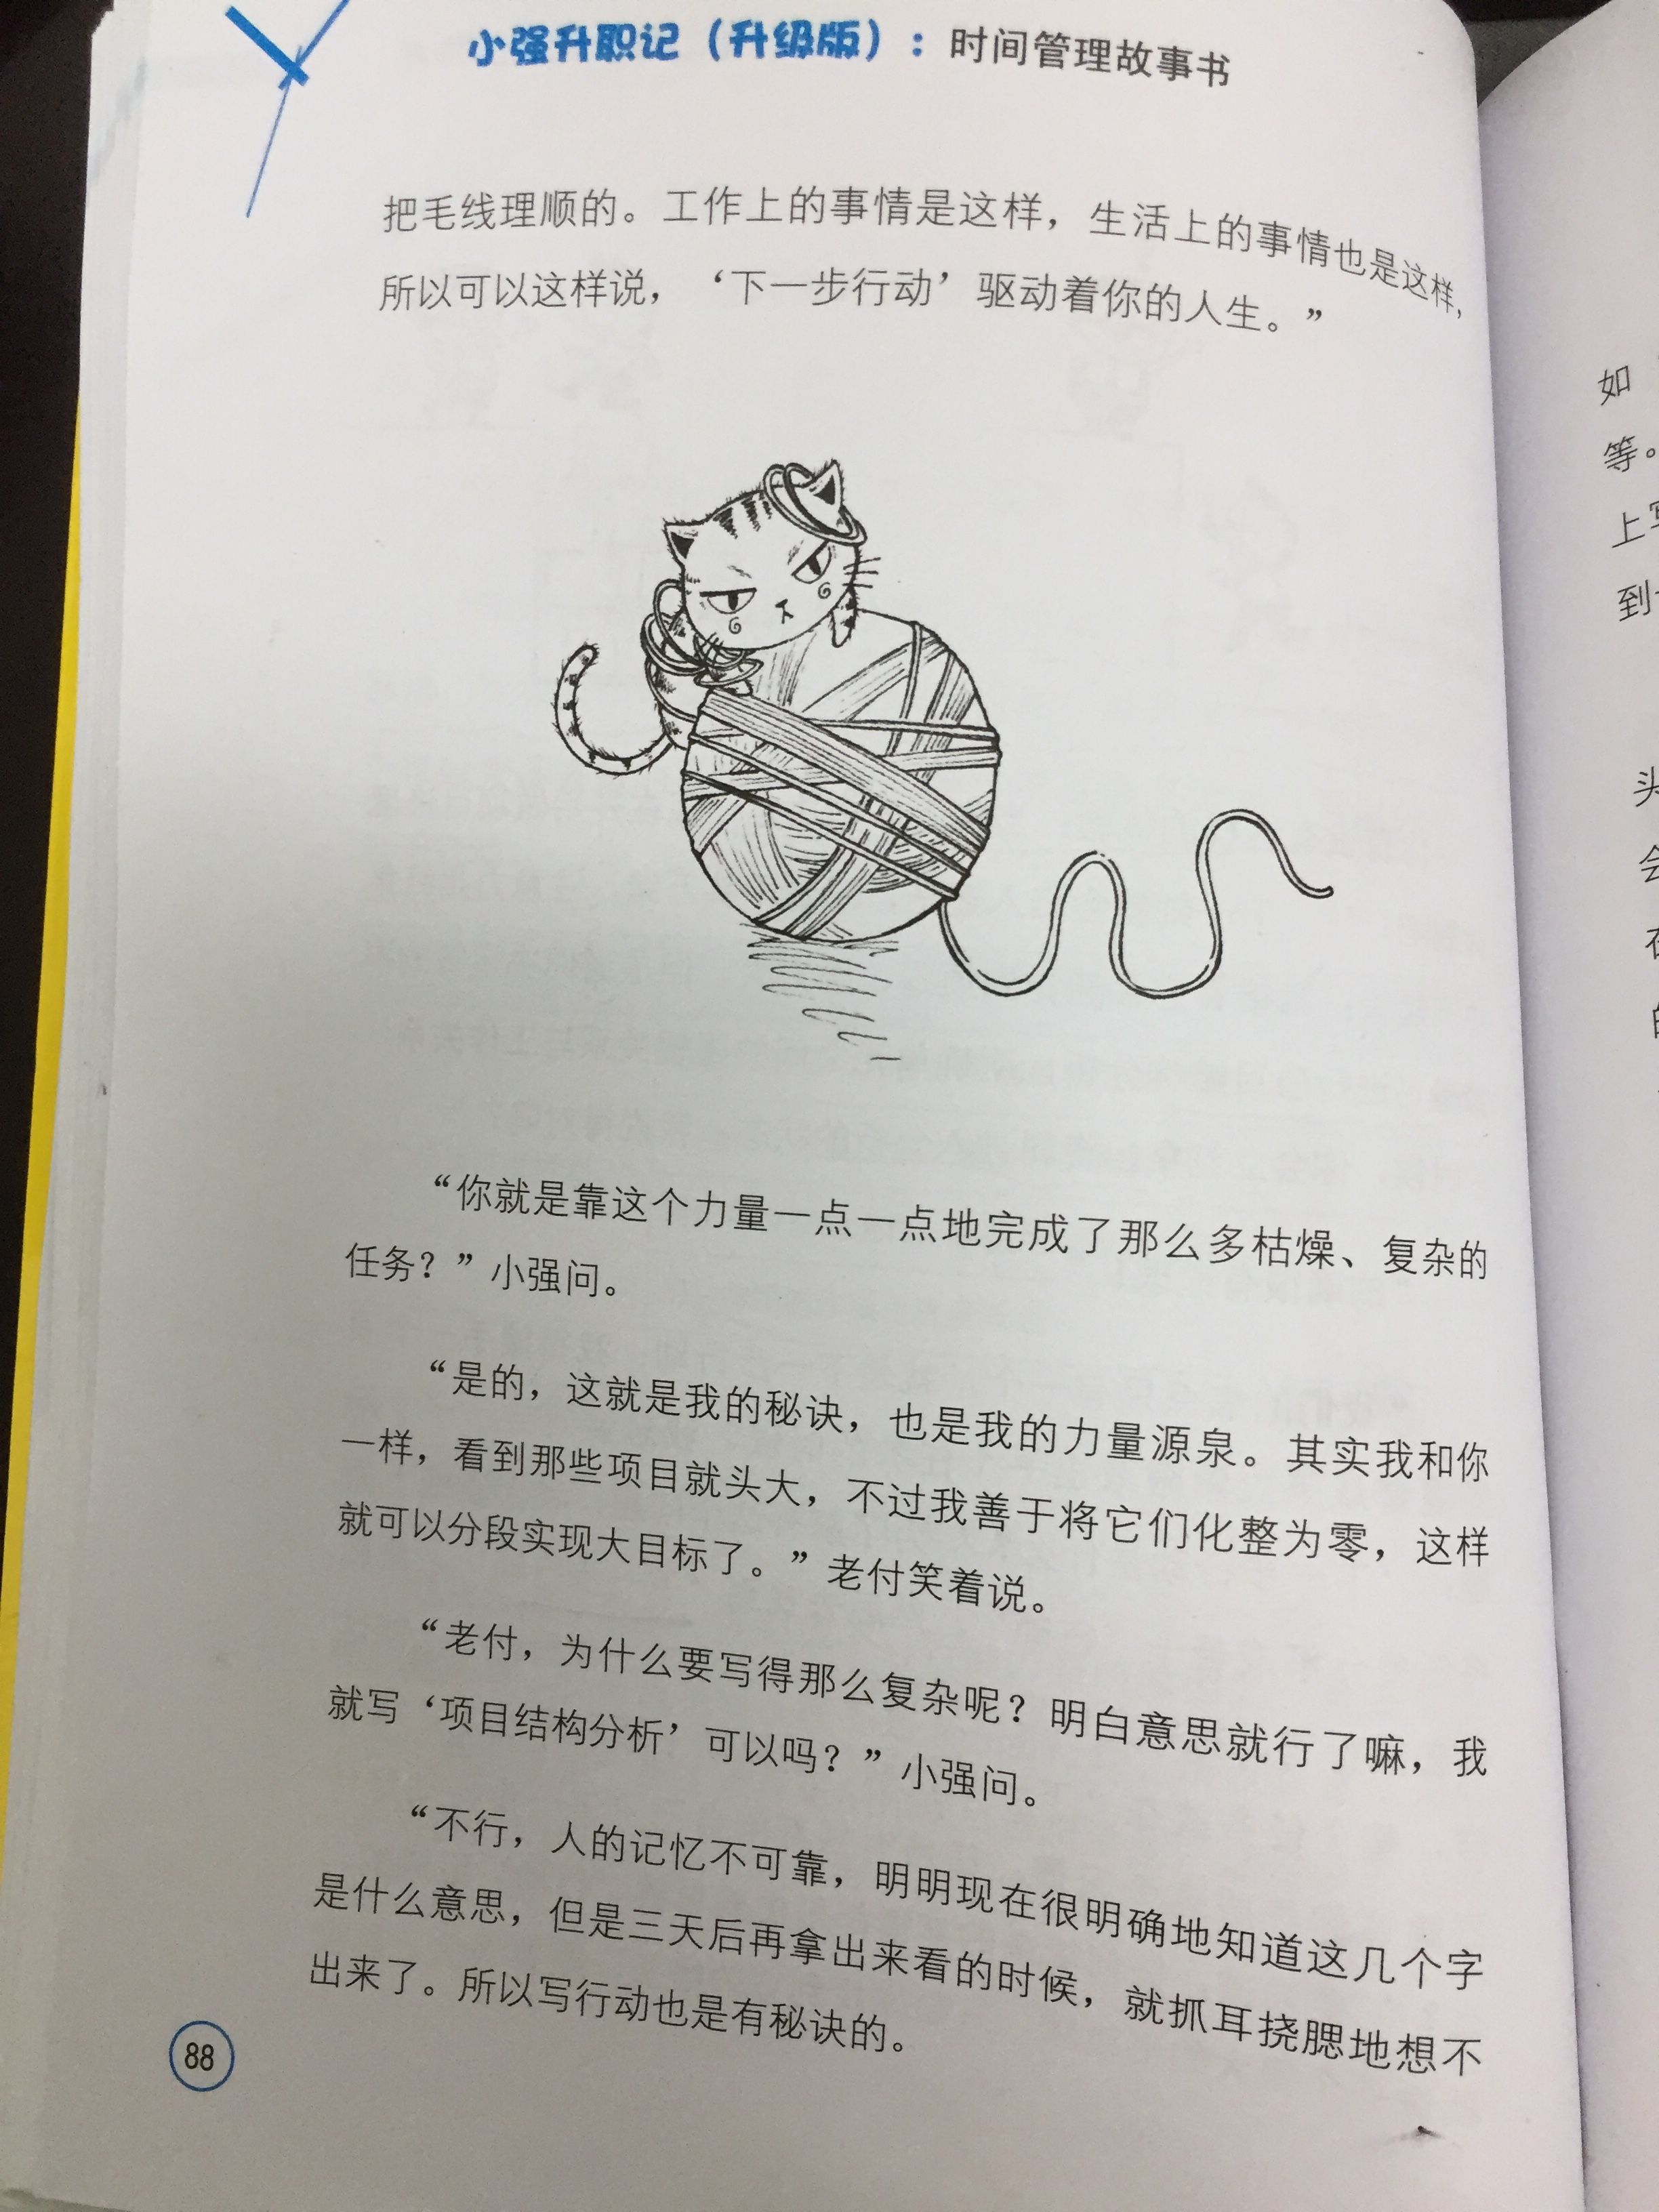 小强升职记（升级版）：时间管理故事书
把毛线理顺的。工作上的事情是这样，生活上的事情也是这样，
所以可以这样说，‘下一步行动’驱动着你的人生。”
“你就是靠这个力量一点一点地完成了那么多枯燥、复杂的
任务？”小强问。
“是的，这就是我的秘诀，也是我的力量源泉。其实我和你
一样，看到那些项目就头大，不过我善于将它们化整为零，这样
就可以分段实现大目标了。”老付笑着说。
“老付，为什么要写得那么复杂呢？明白意思就行了嘛，我
就写‘项目结构分析’可以吗？”小强问。
“不行，人的记忆不可靠，明明现在很明确地知道这几个字
是什么意思，但是三天后再拿出来看的时候，就抓耳挠腮地想不
出来了。所以写行动也是有秘诀的。
88
如
等。
上
到